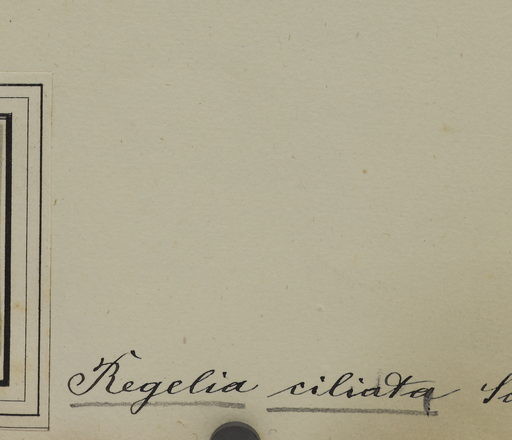 Regelia ciliata